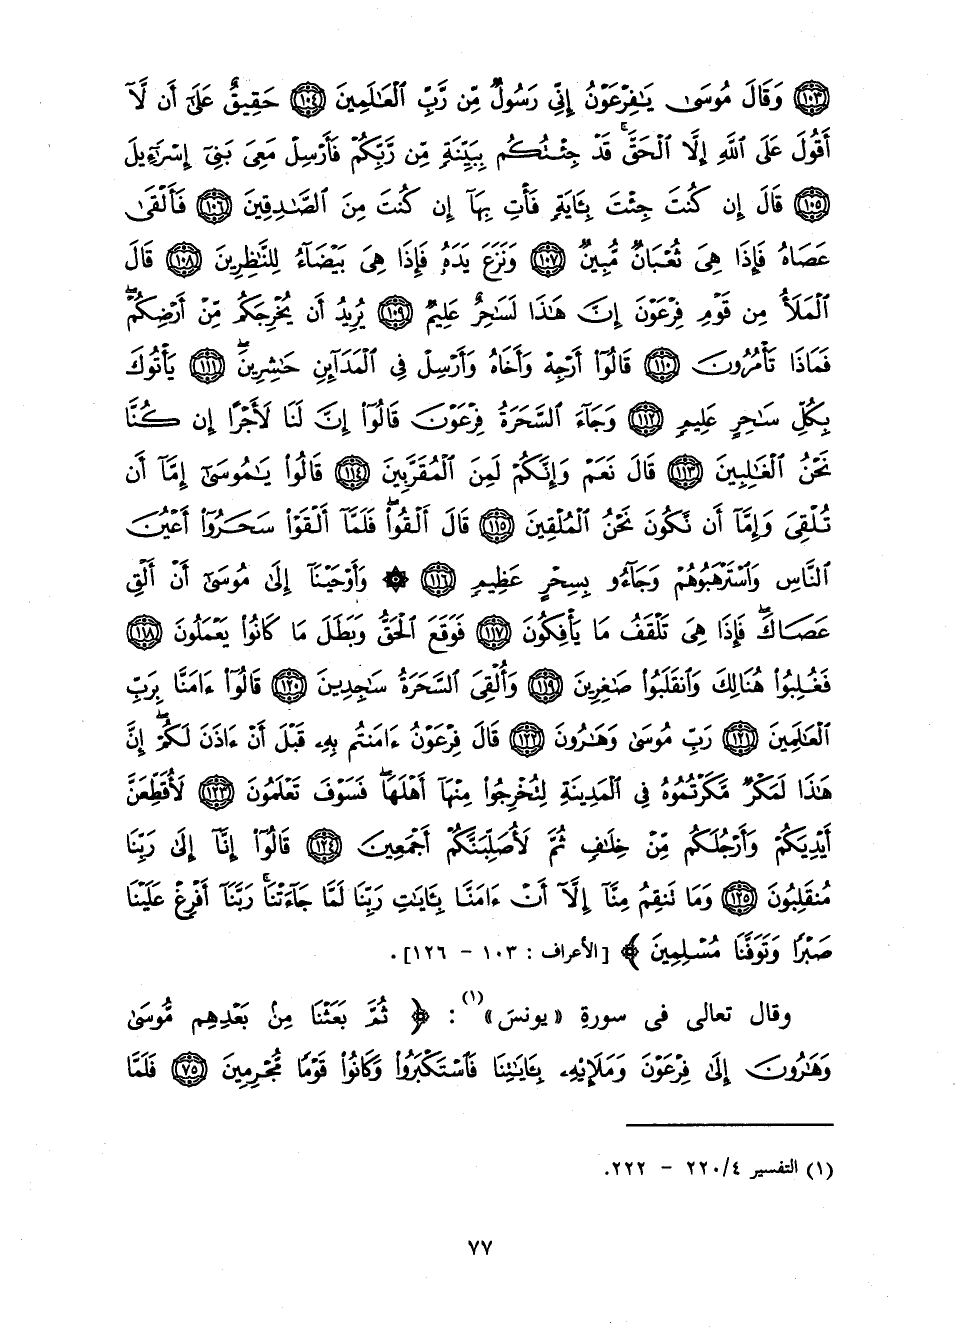 ﴿١٠٣﴾ وَقَالَ مُوسَىٰ يَـٰفِرْعَوْنُ إِنِّى رَسُولٌ مِّن رَّبِّ ٱلْعَـٰلَمِينَ ﴿١٠٤﴾ حَقِيقٌ عَلَىٰٓ أَن لَّآ
أَقُولَ عَلَى ٱللَّهِ إِلَّا ٱلْحَقَّ ۚ قَدْ جِئْتُكُم بِبَيِّنَةٍ مِّن رَّبِّكُمْ فَأَرْسِلْ مَعِىَ بَنِىٓ إِسْرَٰٓءِيلَ
﴿١٠٥﴾ قَالَ إِن كُنتَ جِئْتَ بِـَٔايَةٍ فَأْتِ بِهَآ إِن كُنتَ مِنَ ٱلصَّـٰدِقِينَ ﴿١٠٦﴾ فَأَلْقَىٰ
عَصَاهُ فَإِذَا هِىَ ثُعْبَانٌ مُّبِينٌ ﴿١٠٧﴾ وَنَزَعَ يَدَهُۥ فَإِذَا هِىَ بَيْضَآءُ لِلنَّـٰظِرِينَ ﴿١٠٨﴾ قَالَ
ٱلْمَلَأُ مِن قَوْمِ فِرْعَوْنَ إِنَّ هَـٰذَا لَسَـٰحِرٌ عَلِيمٌ ﴿١٠٩﴾ يُرِيدُ أَن يُخْرِجَكُم مِّنْ أَرْضِكُمْ ۖ
فَمَاذَا تَأْمُرُونَ ﴿١١٠﴾ قَالُوٓا۟ أَرْجِهْ وَأَخَاهُ وَأَرْسِلْ فِى ٱلْمَدَآئِنِ حَـٰشِرِينَ ۖ ﴿١١١﴾ يَأْتُوكَ
بِكُلِّ سَـٰحِرٍ عَلِيمٍ ﴿١١٢﴾ وَجَآءَ ٱلسَّحَرَةُ فِرْعَوْنَ قَالُوٓا۟ إِنَّ لَنَا لَأَجْرًا إِن كُنَّا
نَحْنُ ٱلْغَـٰلِبِينَ ﴿١١٣﴾ قَالَ نَعَمْ وَإِنَّكُمْ لَمِنَ ٱلْمُقَرَّبِينَ ﴿١١٤﴾ قَالُوا۟ يَـٰمُوسَىٰٓ إِمَّآ أَن
تُلْقِىَ وَإِمَّآ أَن نَّكُونَ نَحْنُ ٱلْمُلْقِينَ ﴿١١٥﴾ قَالَ أَلْقُوا۟ ۖ فَلَمَّآ أَلْقَوْا۟ سَحَرُوٓا۟ أَعْيُنَ
ٱلنَّاسِ وَٱسْتَرْهَبُوهُمْ وَجَآءُو بِسِحْرٍ عَظِيمٍ ﴿١١٦﴾ ۞ وَأَوْحَيْنَآ إِلَىٰ مُوسَىٰٓ أَنْ أَلْقِ
عَصَاكَ ۖ فَإِذَا هِىَ تَلْقَفُ مَا يَأْفِكُونَ ﴿١١٧﴾ فَوَقَعَ ٱلْحَقُّ وَبَطَلَ مَا كَانُوا۟ يَعْمَلُونَ ﴿١١٨﴾
فَغُلِبُوا۟ هُنَالِكَ وَٱنقَلَبُوا۟ صَـٰغِرِينَ ﴿١١٩﴾ وَأُلْقِىَ ٱلسَّحَرَةُ سَـٰجِدِينَ ﴿١٢٠﴾ قَالُوٓا۟ ءَامَنَّا بِرَبِّ
ٱلْعَـٰلَمِينَ ﴿١٢١﴾ رَبِّ مُوسَىٰ وَهَـٰرُونَ ﴿١٢٢﴾ قَالَ فِرْعَوْنُ ءَامَنتُم بِهِۦ قَبْلَ أَنْ ءَاذَنَ لَكُمْ ۖ إِنَّ
هَـٰذَا لَمَكْرٌ مَّكَرْتُمُوهُ فِى ٱلْمَدِينَةِ لِتُخْرِجُوا۟ مِنْهَآ أَهْلَهَا ۖ فَسَوْفَ تَعْلَمُونَ ﴿١٢٣﴾ لَأُقَطِّعَنَّ
أَيْدِيَكُمْ وَأَرْجُلَكُم مِّنْ خِلَـٰفٍ ثُمَّ لَأُصَلِّبَنَّكُمْ أَجْمَعِينَ ﴿١٢٤﴾ قَالُوٓا۟ إِنَّآ إِلَىٰ رَبِّنَا
مُنقَلِبُونَ ﴿١٢٥﴾ وَمَا تَنقِمُ مِنَّآ إِلَّآ أَنْ ءَامَنَّا بِـَٔايَـٰتِ رَبِّنَا لَمَّا جَآءَتْنَا ۚ رَبَّنَآ أَفْرِغْ عَلَيْنَا
صَبْرًا وَتَوَفَّنَا مُسْلِمِينَ ﴾ [الأعراف : ١٠٣ - ١٢٦] .
وقال تعالى فى سورةِ «يونسَ»(١) : ﴿ ثُمَّ بَعَثْنَا مِنۢ بَعْدِهِم مُّوسَىٰ
وَهَـٰرُونَ إِلَىٰ فِرْعَوْنَ وَمَلَإِي۟هِۦ بِـَٔايَـٰتِنَا فَٱسْتَكْبَرُوا۟ وَكَانُوا۟ قَوْمًا مُّجْرِمِينَ ﴿٧٥﴾ فَلَمَّا
(١) التفسير ٢٢٠/٤ - ٢٢٢.
٧٧